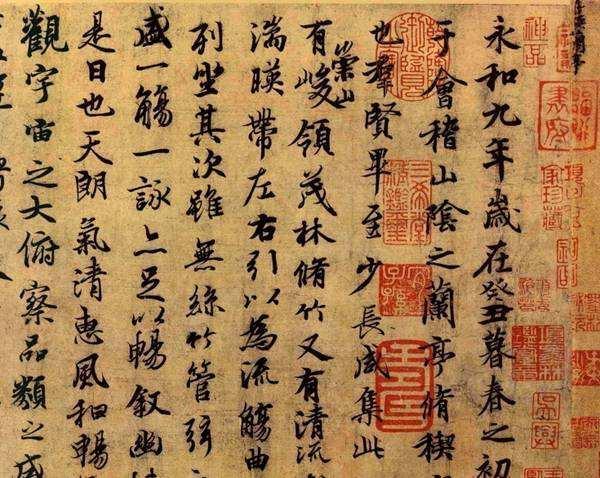 神品
永和九年歲在癸丑暮春之初
于會稽山陰之蘭亭脩稧
也羣賢畢至少長咸集此
有崇山峻領茂林脩竹又有清流
湍暎帶左右引以為流觴曲
列坐其次雖無絲竹管弦
盛一觴一詠亦足以暢敘幽
是日也天朗氣清惠風和暢
觀宇宙之大俯察品類之盛
三希堂精鑑璽
宜子孫